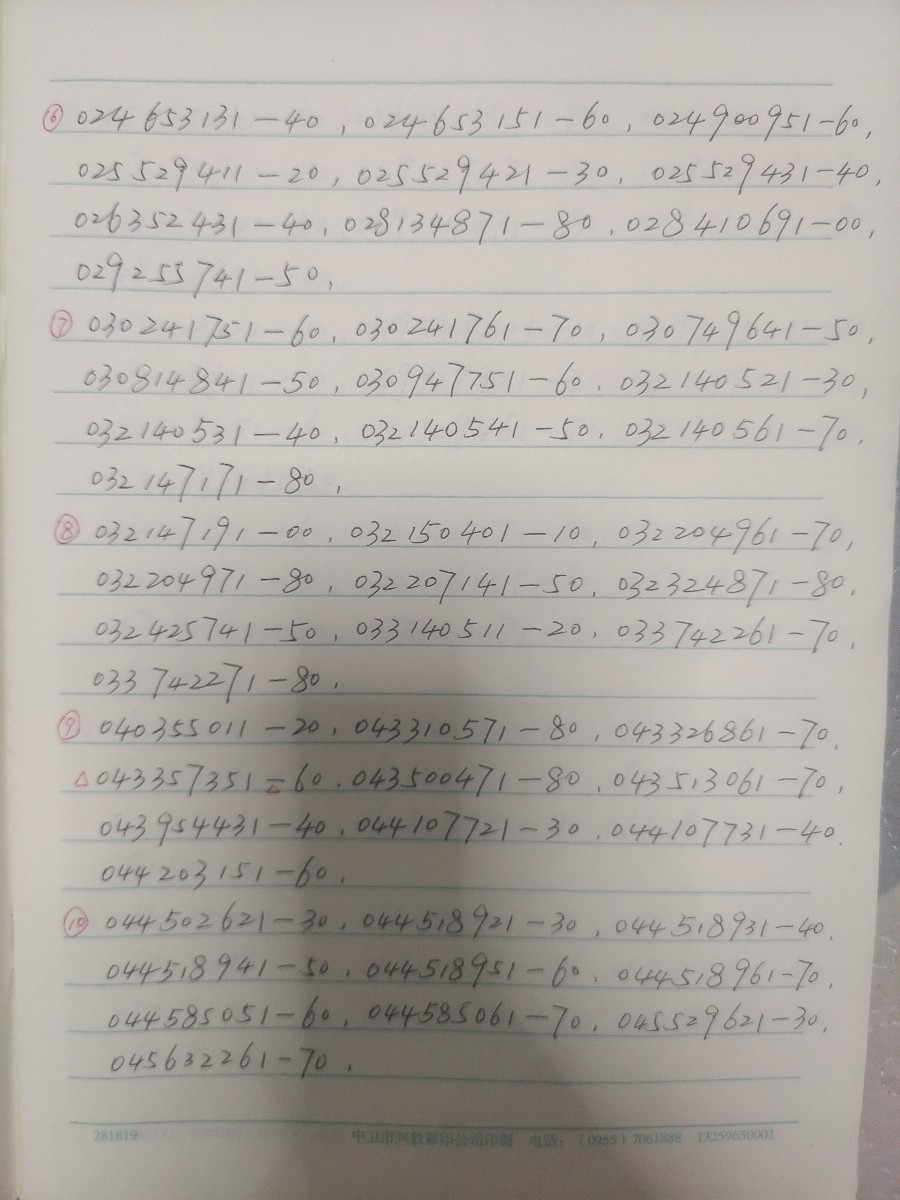 ⑥ 024653131-40, 024653151-60, 024900951-60,
025529411-20, 025529421-30, 025529431-40,
026352431-40, 028134871-80, 028410691-00,
029255741-50,
⑦ 030241751-60, 030241761-70, 030749641-50,
030814841-50, 030947751-60, 032140521-30,
032140531-40, 032140541-50, 032140561-70,
032147171-80,
⑧ 032147191-00, 032150401-10, 032204961-70,
032204971-80, 032207141-50, 032324871-80,
032425741-50, 033140511-20, 033742261-70,
033742271-80,
⑨ 040355011-20, 043310571-80, 043326861-70,
△043357351-60, 043500471-80, 043513061-70,
043954431-40, 044107721-30, 044107731-40,
044203151-60,
⑩ 044502621-30, 044518921-30, 044518931-40,
044518941-50, 044518951-60, 044518961-70,
044585051-60, 044585061-70, 045529621-30,
045632261-70,
281819 中卫市兴教彩印公司印制 电话:(0955)7061888 13259650001